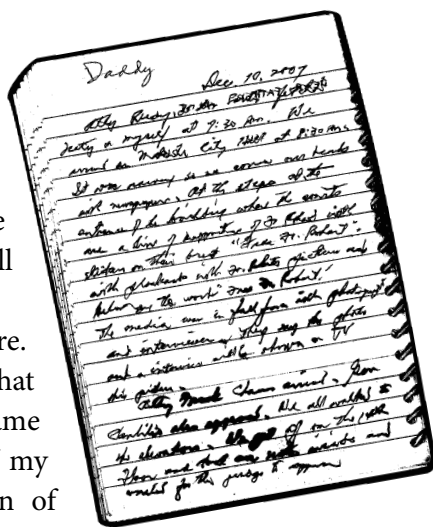 Daddy
Dec. 10, 2007
Atty Rudy,
& myself at 7:30 Am. We
arrived in Makati City Hall at 8:30 Am.
It was raining so we cover our heads
with newspapers. At the steps of the
entrance of the building where the courts
are a line of supporters of Fr Robert with
stickers on their breast "Free Fr. Robert".
with placards with Fr. Robert's picture and
below are the words "Free Fr Robert!"
The media was in full force with
and interviewers. They say the photo
and interview will be shown on TV
this
Atty Frank Chavez arrived.
also appeared. We all walked to
the elevators. We got off on the 10th
floor and took our seats inside and
waited for the judge to appear
e
ll
re.
hat
ame
my
n of